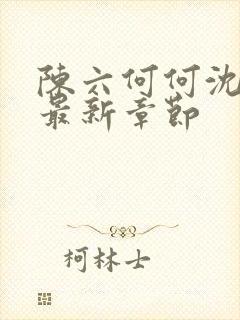 陳六何何沈
最新章節
柯林士